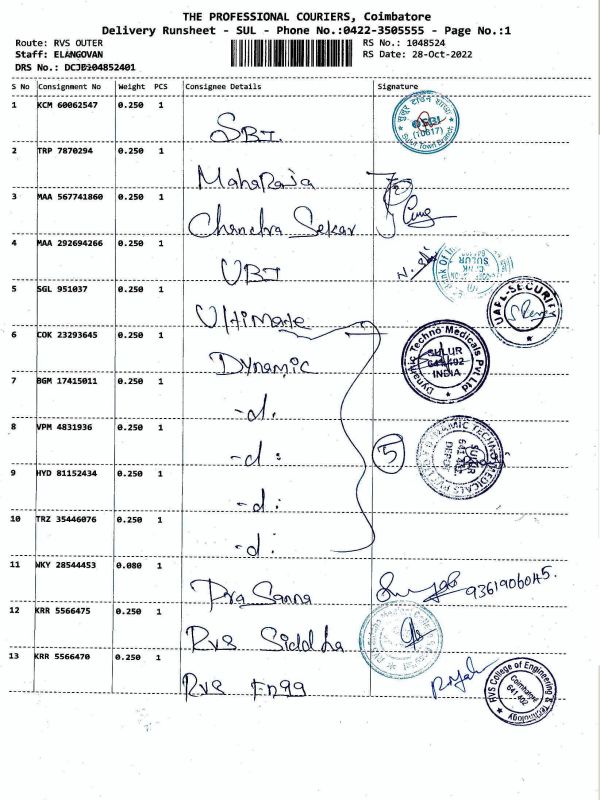 THE PROFESSIONAL COURIERS, Coimbatore
Delivery Runsheet - SUL - Phone No.:0422-3505555 - Page No.:1
Route: RVS OUTER
RS No.: 1048524
Staff: ELANGOVAN
RS Date: 28-Oct-2022
DRS No.: DCJB104852401
S No Consignment No Weight PCS Consignee Details Signature
1 KCM 60062547 0.250 1
SBI
SBI
(10617)
Sulur Town Branch
2 TRP 7870294 0.250 1
Maharaja
3 MAA 567741860 0.250 1
Chandra Sekar
4 MAA 292694266 0.250 1
UBI
SULUR
5 SGL 951037 0.250 1
Ultimate
UAFL-SECURITY
6 COK 23293645 0.250 1
Dynamic
Dynamic Techno Medicals Pvt Ltd
SULUR
641 402
INDIA
7 BGM 17415011 0.250 1
-d.
8 VPM 4831936 0.250 1
-d:
5
DYNAMIC TECHNO MEDICALS PVT LTD
SULUR
DEPOT
9 HYD 81152434 0.250 1
-d:
10 TRZ 35446076 0.250 1
-d:
11 WKY 28544453 0.080 1
Pra Sanna
9361906045.
12 KRR 5566475 0.250 1
RVS Siddha
13 KRR 5566470 0.250 1
RVS Engg
RVS College of Engineering & Technology
Coimbatore
641 402